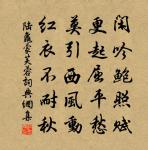 閑吟鮑照賦
更起屈平愁
莫引西風動
紅衣不耐秋
陸龜蒙芙蓉詞典網集